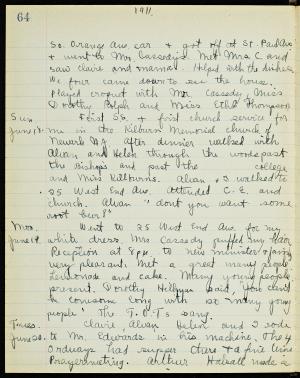 64
1911
So. Orange Ave. car & got off at St. Pauls Ave
& went to Mrs Cassedy's. Met Mrs C. and
saw Claire and mama. Helped with the dishes
We four came down to see the house.
Played croquet with Mr. Cassedy, Miss
Dorothy Rolph and Miss Ethel Thompson
Sun First S.S. & first church service for
June 18 me in the Kilburn Memorial church of
Newark N.J. After dinner walked with
Alvan and Helen through the woods past
the Bishops and past the college
and Miss Kilburns. Alvan & I walked to
25 West End Ave. Attended C.E. and
church. Alvan "don't you want some
root beer"
Mon. Went to 25 West End Ave for my
June 19 white dress. Mrs Cassedy puffed my hair
Reception at 8 p.m. to new minister & family
very pleasant. Met a great many people
Lemonade and cake. Many young people
present. Dorothy said, "You can't
be lonesome long with so many young
people". The sang.
Tues. Claire, Alvan Helen and I rode
June 20 to Mr. Edwards in his machine. The 4
Ordways had supper there & a fine time
Prayermeeting. Arthur made a